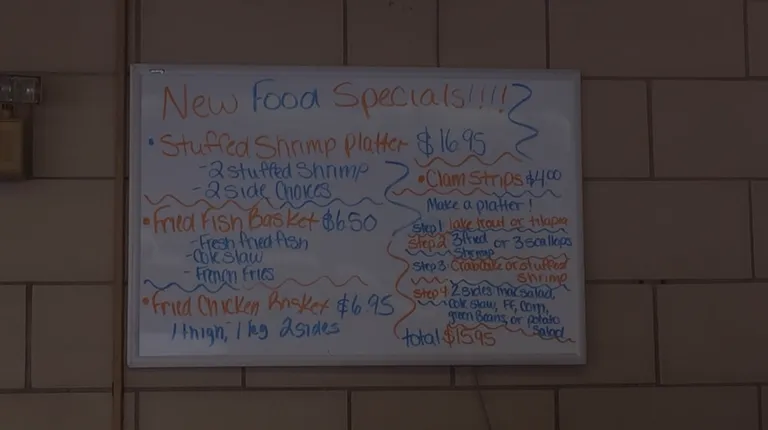 New Food Specials!!!!
• Stuffed Shrimp Platter $16.95
- 2 stuffed Shrimp
- 2 side Choices
• Fried Fish Basket $6.50
- Fresh fried fish
- Cole slaw
- French Fries
• Fried Chicken Basket $6.95
1 thigh, 1 leg 2 sides
• Clam Strips $4.00
Make a platter!
Step 1 Lake trout or tilapia
Step 2 3 fried or 3 scallops
Shrimp
Step 3: Crabcake or stuffed
shrimp
Step 4 2 sides mac salad,
cole slaw, FF, Corn,
green Beans, or potato
Salad
total $15.95